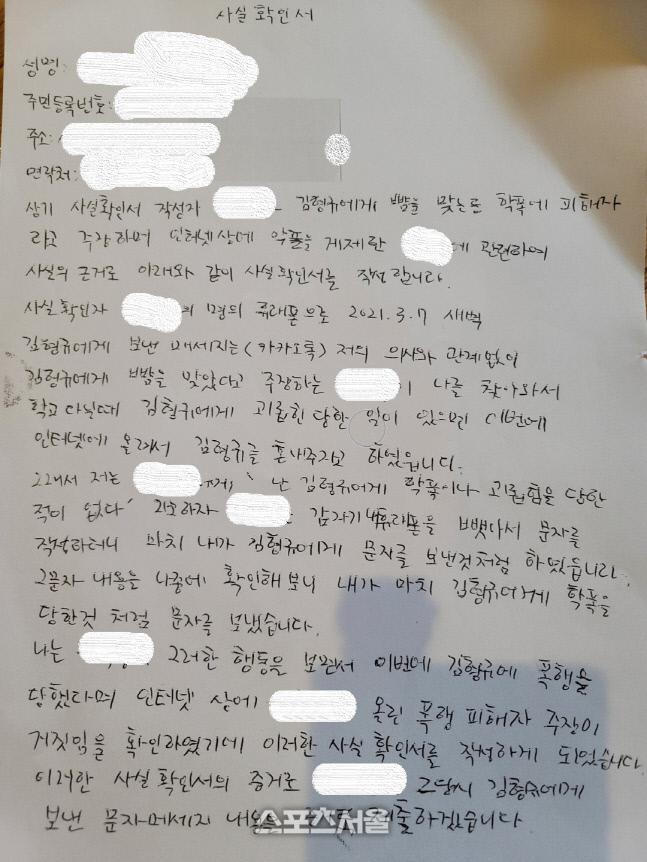 사실 확인서
성명:
주민등록번호:
주소:
연락처:
상기 사실확인서 작성자 김형규에게 뺨을 맞는등 학폭에 피해자
라고 주장하며 인터넷상에 악플을 게제한 에 관련하여
사실의 근거로 아래와 같이 사실확인서를 작성합니다.
사실확인자 의 명의 휴래폰으로 2021.3.7 새벽
김형규에게 보낸 메세지는(카카오톡) 저의 의사와 관계없이
김형규에게 뺨을 맞았다고 주장하는 나를 찾아와서
학교 다닐때 김형규에게 괴립힌당한 일이 있으면 이번에
인터넷에 올려서 김형규를 혼내주자고 하였읍니다.
그래서 저는 에게 "난 김형규에게 학폭이나 괴립힘을 당한
적이 없다" 라고하자 갑자기 휴래폰을 뺏아서 문자를
작성하더니 마치 내가 김형규에게 문자를 보낸것처럼 하였읍니다.
그문자 내용을 나중에 확인해보니 내가 마치 김형규에게 학폭을
당한것 처럼 문자를 보냈습니다.
나는 그러한 행동을 보면서 이번에 김형규에 폭행을
당했다며 인터넷 상에 올린 폭행 피해자 주장이
거짓임을 확인하였기에 이러한 사실 확인서를 작성하게 되었습니다
이러한 사실 확인서의 증거로 그당시 김형규에게
보낸 문자메세지 내용을 제출하겠습니다.
스포츠서울